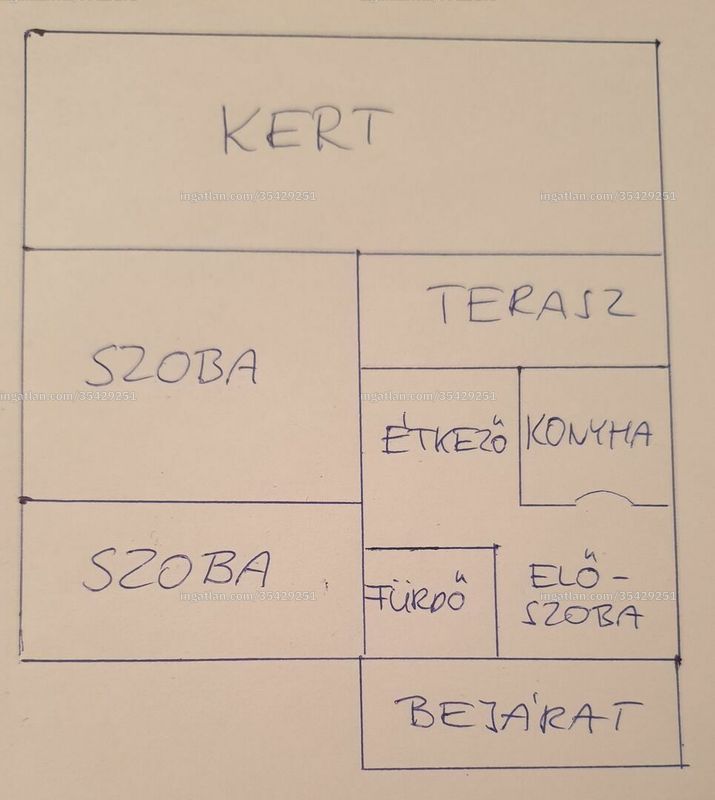 KERT
ingatlan.com/35429251
ingatlan.com/35429251
TERASZ
SZOBA
ingatlan.com/35429251
ingatlan.com/35429251
ÉTKEZŐ
KONYHA
SZOBA
FÜRDŐ
ELŐ-
SZOBA
ingatlan.com/35429251
ingatlan.com/35429251
BEJÁRAT